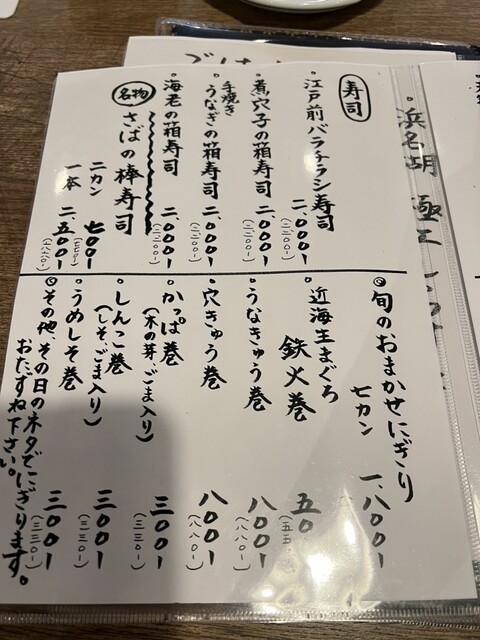 寿司
江戸前バラチラシ寿司 二、〇〇〇-
(二、二〇〇-)
煮穴子の箱寿司 二、〇〇〇-
手焼き
うなぎの箱寿司 二、〇〇〇-
(二、二〇〇-)
海老の箱寿司 二、〇〇〇-
(二、二〇〇-)
名物
さばの棒寿司
二カン 七〇〇-
(七七〇-)
一本 二、五〇〇-
旬のおまかせにぎり
七カン 一、八〇〇-
近海生まぐろ
鉄火巻
うなきゅう巻 八〇〇-
(八八〇-)
穴きゅう巻 八〇〇-
(八八〇-)
かっぱ巻 三〇〇-
(木の芽、ごま入り) (三三〇-)
しんこ巻 三〇〇-
(しそ、ごま入り) (三三〇-)
うめしそ巻 三〇〇-
(三三〇-)
その他、その日のネタでにぎります。
おたずね下さい。
浜名湖